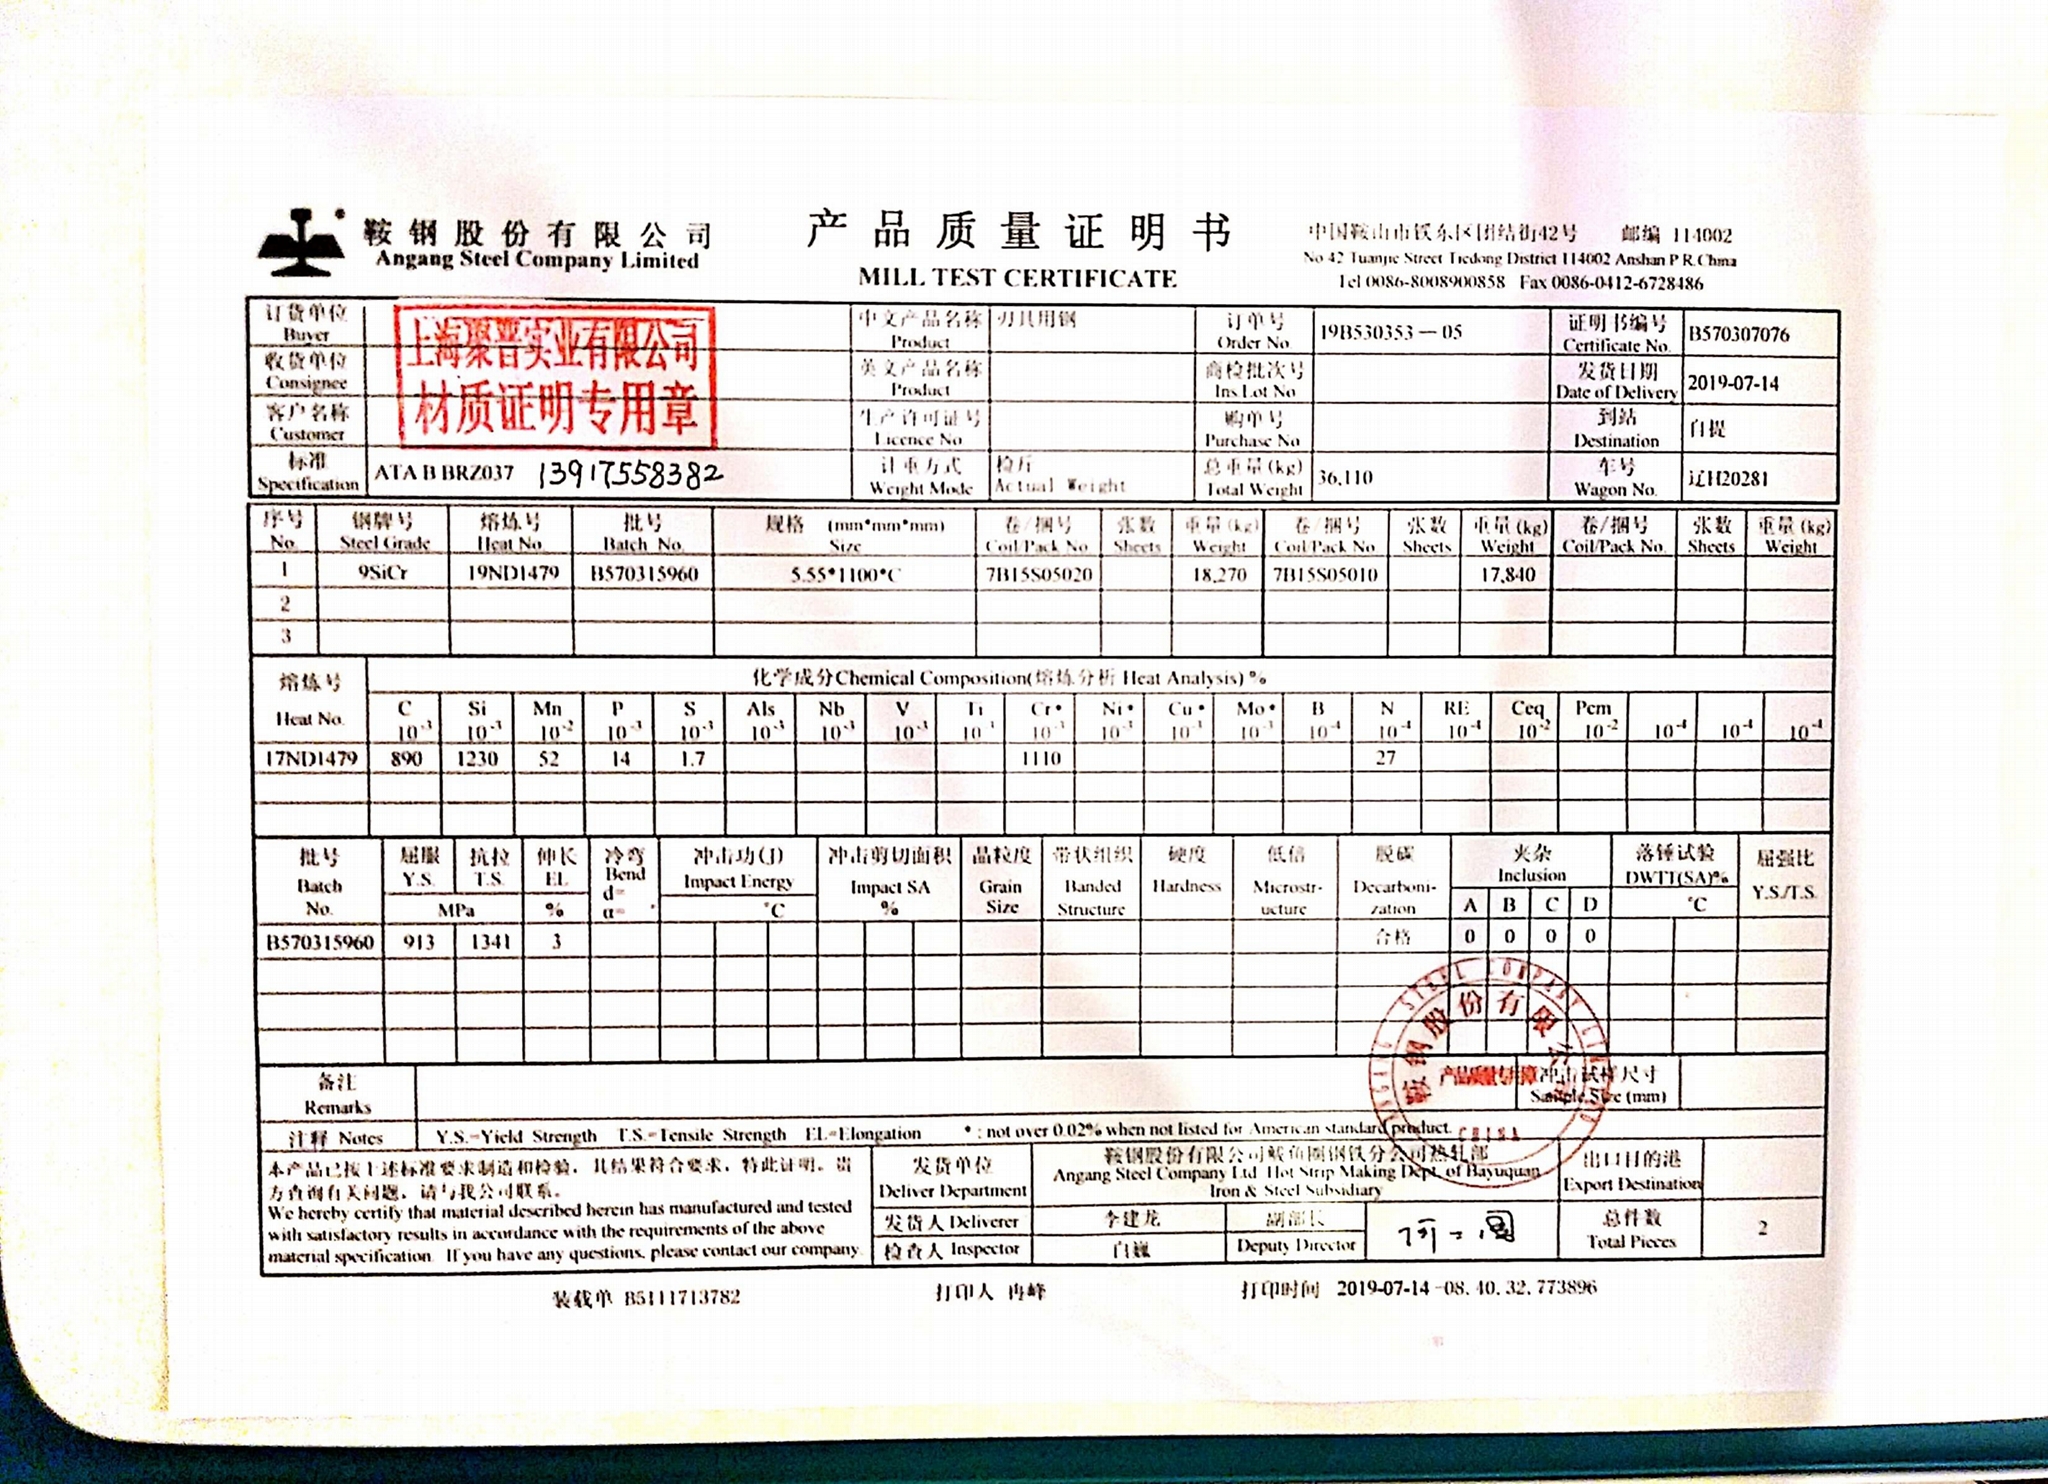 鞍钢股份有限公司
Angang Steel Company Limited
产品质量证明书
MILL TEST CERTIFICATE
中国鞍山市铁东区团结街42号 邮编 114002
No 42 Tuanjie Street Tiedong District 114002 Anshan P R.China
Tel 0086-8008900858 Fax 0086-0412-6728486
订货单位 Buyer
收货单位 Consignee
客户名称 Customer
上海聚普实业有限公司
材质证明专用章
标准 Specification ATA B BRZ037 13917558382
中文产品名称 Product 刃具用钢
英文产品名称 Product
生产许可证号 Licence No
计重方式 Weight Mode 检斤 Actual Weight
订单号 Order No. 19B530353-05
商检批次号 Ins Lot No
购单号 Purchase No
总重量(kg) Total Weight 36,110
证明书编号 Certificate No. B570307076
发货日期 Date of Delivery 2019-07-14
到站 Destination 自提
车号 Wagon No. 辽H20281
序号 钢牌号 熔炼号 批号 规格 (mm*mm*mm) 卷/捆号 张数 重量(kg) 卷/捆号 张数 重量(kg) 卷/捆号 张数 重量(kg)
No. Steel Grade Heat No. Batch No. Size Coil/Pack No Sheets Weight Coil/Pack No Sheets Weight Coil/Pack No. Sheets Weight
1 9SiCr 19ND1479 B570315960 5.55*1100*C 7B15S05020 18,270 7B15S05010 17,840
2
3
熔炼号 Heat No.
化学成分Chemical Composition(熔炼分析 Heat Analysis) %
C Si Mn P S Als Nb V Ti Cr* Ni* Cu* Mo* B N RE Ceq Pcm
10-3 10-3 10-2 10-3 10-3 10-3 10-3 10-3 10-3 10-3 10-3 10-3 10-3 10-4 10-4 10-4 10-2 10-2 10-4 10-4 10-4
17ND1479 890 1230 52 14 1.7 1110 27
批号 屈服 抗拉 伸长 冷弯 冲击功(J) 冲击剪切面积 晶粒度 带状组织 硬度 低倍 脱碳 夹杂 落锤试验 屈强比
Batch No. Y.S. T.S. EL Bend d= α= Impact Energy Impact SA % Grain Size Banded Structure Hardness Microstr-ucture Decarboni-zation Inclusion DWTT(SA)% Y.S./T.S.
MPa % °C A B C D °C
B570315960 913 1341 3 合格 0 0 0 0
备注 Remarks
冲击试样尺寸
Sample Size (mm)
鞍钢股份有限公司
ANGANG STEEL COMPANY LIMITED
CHINA
注释 Notes Y.S.=Yield Strength T.S.=Tensile Strength EL=Elongation *: not over 0.02% when not listed for American standard product.
本产品已按上述标准要求制造和检验，其结果符合要求，特此证明。贵
方查询有关问题，请与我公司联系。
We hereby certify that material described herein has manufactured and tested
with satisfactory results in accordance with the requirements of the above
material specification. If you have any questions, please contact our company.
发货单位 Deliver Department
鞍钢股份有限公司鲅鱼圈钢铁分公司热轧部
Angang Steel Company Ltd Hot Strip Making Dept. of Bayuquan
Iron & Steel Subsidiary
出口目的港
Export Destination
发货人 Deliverer 李建龙
检查人 Inspector 白巍
副部长
Deputy Director
总件数
Total Pieces 2
装载单 B5111713782 打印人 冉峰 打印时间 2019-07-14-08.40.32.773896